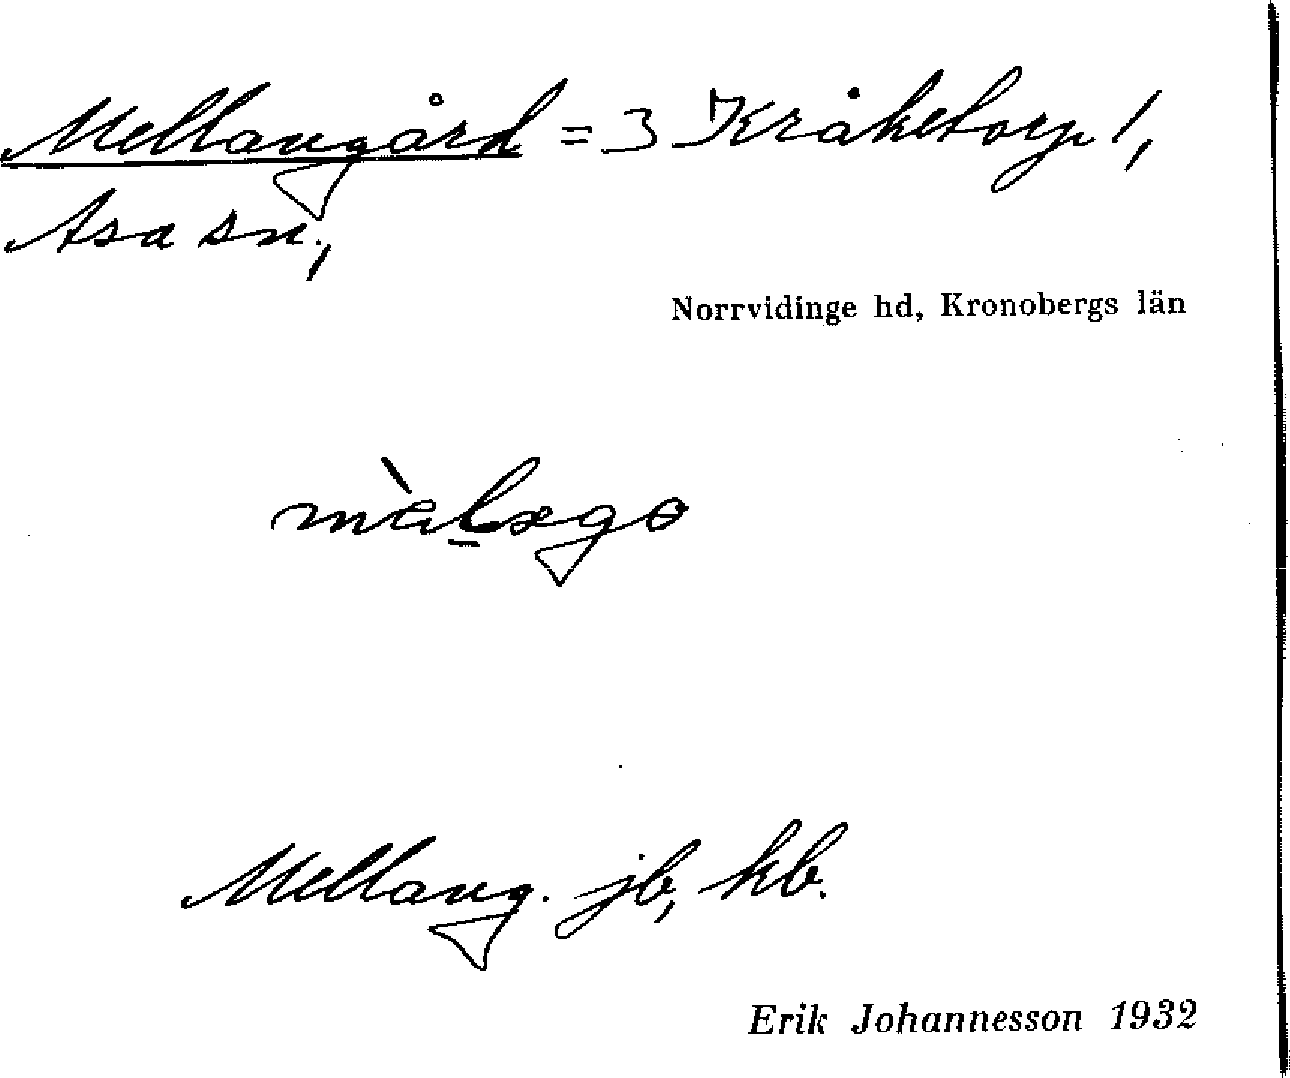 Mellangård = 3 Kråketorp 1,
Asa sn.,
Norrvidinge hd, Kronobergs län
Mellang. jb, kb.
Erik Johannesson 1932